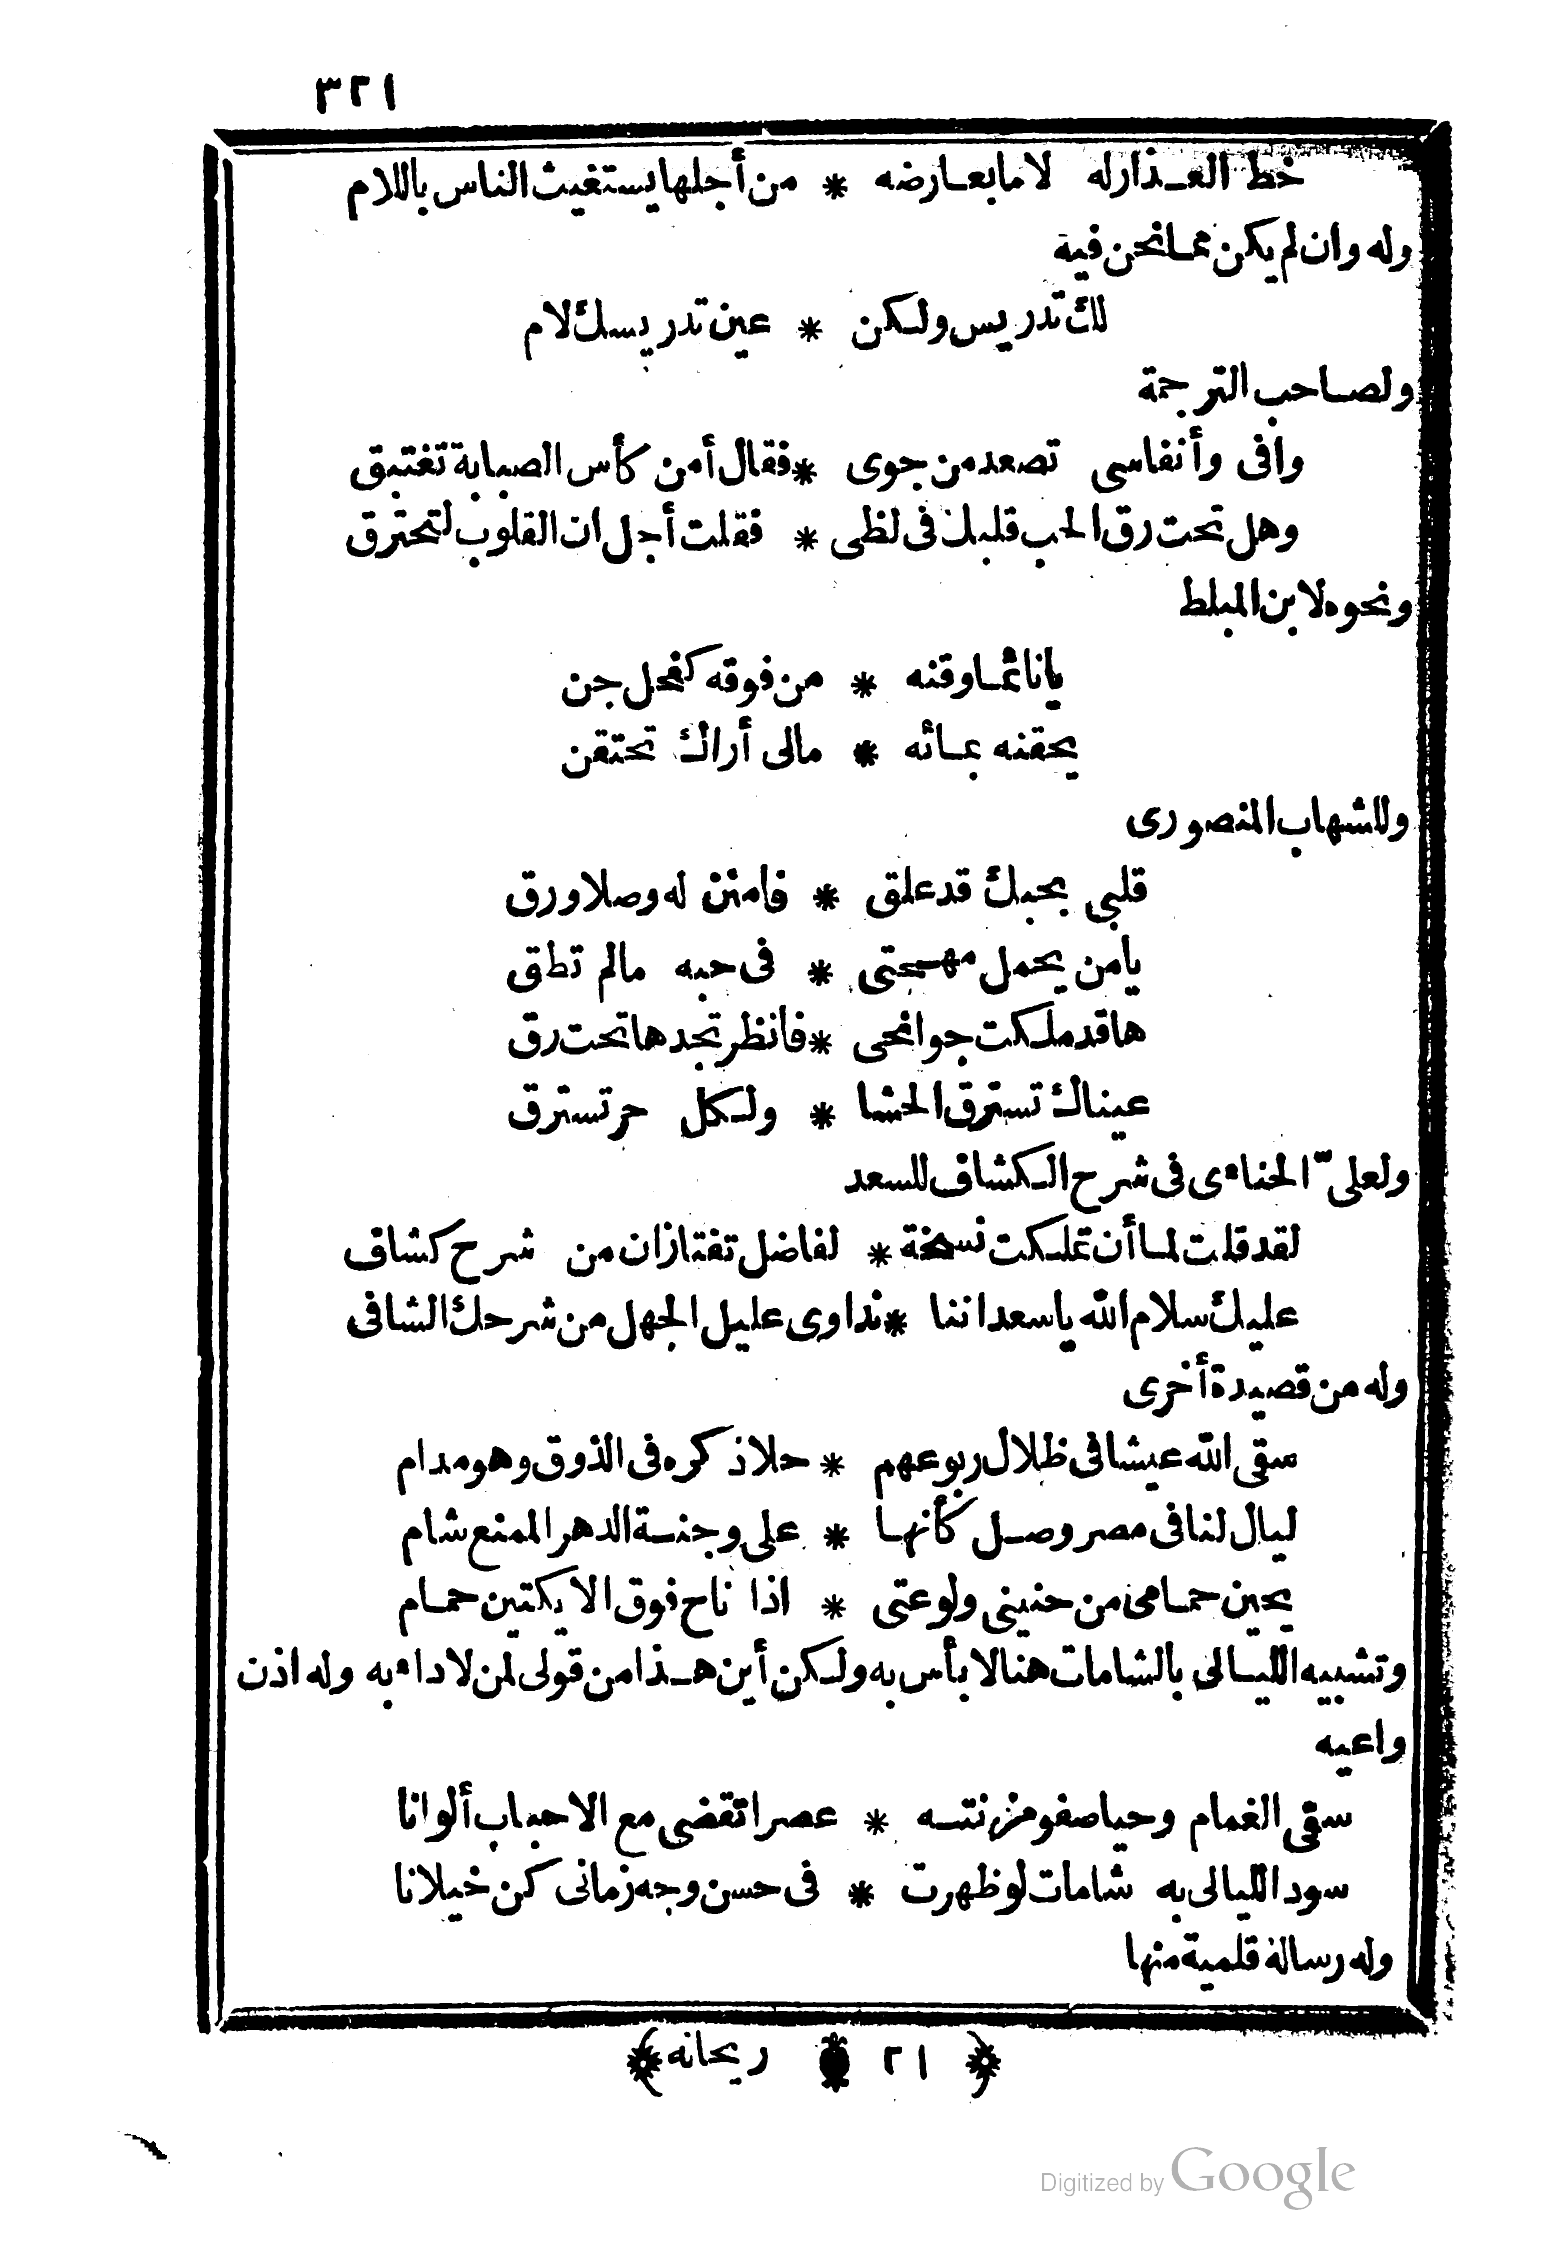 ٣٢١
خط العـذارله لامابعـارضه * من أجلها يستغيث الناس باللام
وله وان لم يكن ممـانحن فيه
لك تدريس ولـكن * عين تدريسك لام
ولصـاحب الترجمة
وافى وأنفاسى تصعد من جوى * فقال أمن كأس الصبابة تغتبق
وهل تحت رق الحب قلبك فى لظى * فقلت أجل ان القلوب لتحترق
ونحوه لابن المبلط
يانائمـا وقنه * من فوقه كفحل جن
يحقنه بمـائه * مالى أراك تحتقن
وللشهاب المنصورى
قلبى بحبك قد علق * فامنن له وصلا ورق
يامن يحمل مهـجتى * فى حبه مالم تطق
هاقد ملـكت جوانحى * فانظر تجدها تحت رق
عيناك تسترق الحشا * ولـكل حر تسترق
ولعلىّ الحناءى فى شرح الـكشاف للسعد
لقد قلت لمـا أن تملـكت نسخة * لفاضل تفتازان من شرح كشاف
عليك سلام الله ياسعد اننا * نداوى عليل الجهل من شرحك الشافى
وله من قصيدة أخرى
سقى الله عيشا فى ظلال ربوعهم * حلا ذكره فى الذوق وهو مدام
ليال لنا فى مصر وصـل كأنهـا * على وجنـة الدهر الممنع شام
يحين حمـامى من حنينى ولوعتى * اذا ناح فوق الايكتين حمـام
وتشبيه الليـالى بالشامات هنا لا بأس به ولـكن أين هـذا من قولى لمن لا داء به وله اذن
واعيه
سقى الغمام وحيا صفو مزنتـه * عصرا تقضى مع الاحباب ألوانا
سود الليالى به شامات لو ظهرت * فى حسن وجه زمانى كن خيلانا
وله رسالة قلمية منها
﴿ ٢١ ريحانه ﴾
Digitized by Google